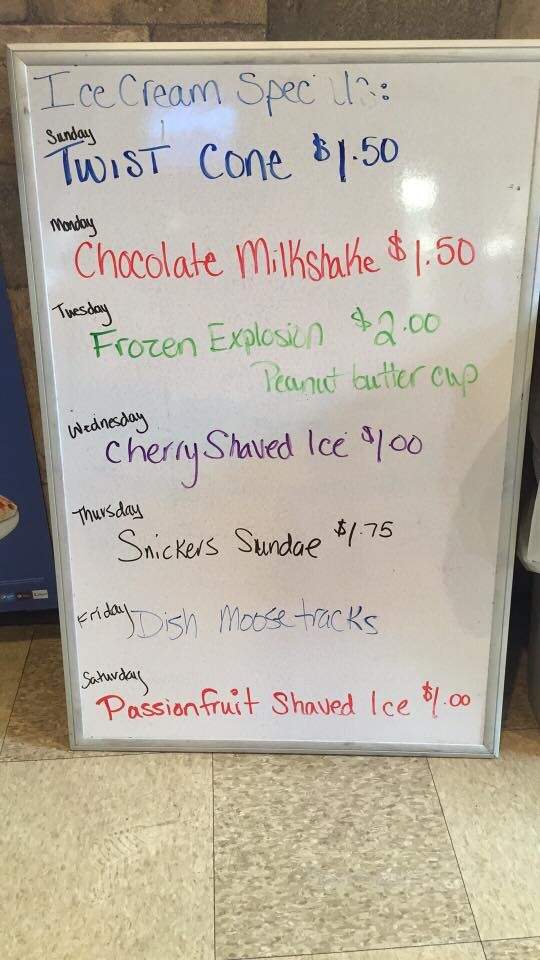 Ice Cream Specials:
Sunday
Twist Cone $1.50
Monday
Chocolate Milkshake $1.50
Tuesday
Frozen Explosion $2.00
Peanut butter cup
Wednesday
Cherry Shaved Ice $1.00
Thursday
Snickers Sundae $1.75
Friday Dish Moosetracks
Saturday
Passionfruit Shaved Ice $1.00